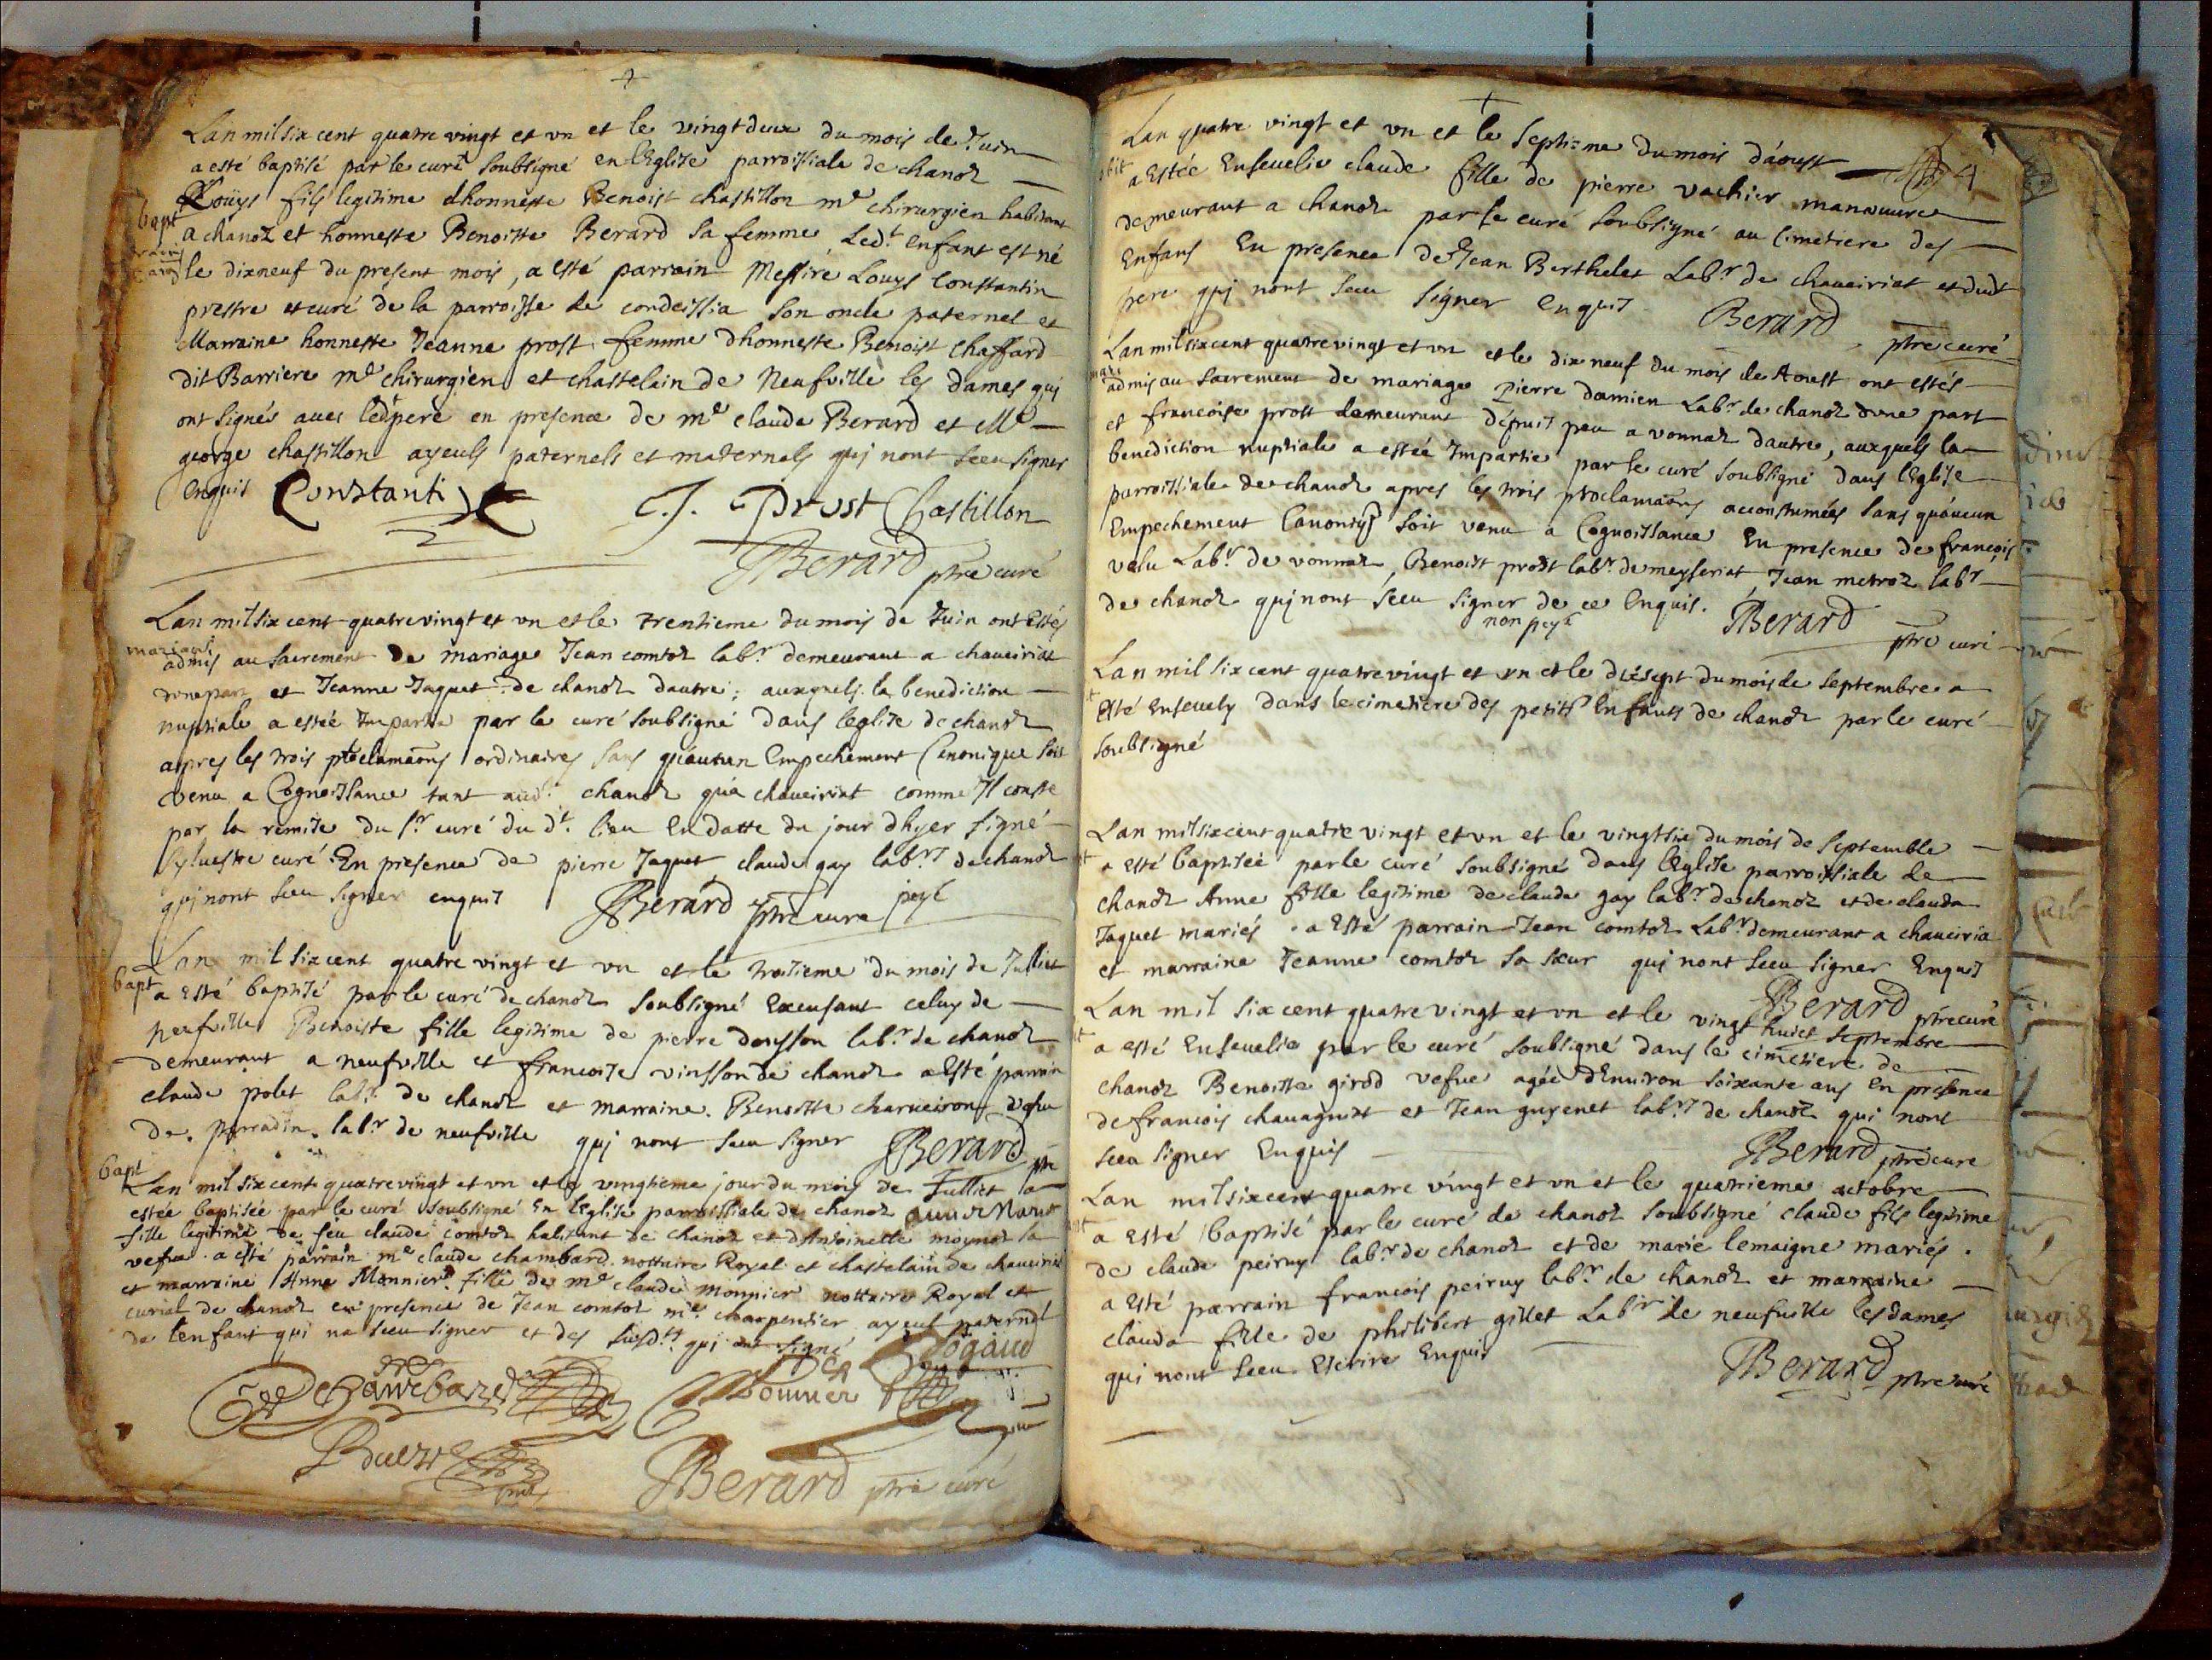 Lan mil six cent quatre vingt et vn et le vingtdeux du mois de Juin
a esté baptisé par le curé soubsigné en lEglise parroissiale de chanoz
Louys fils legitime dhonneste Benoist chastillon me chirurgien habitant
bapt
a chanoz et honneste Benoitte Berard sa femme, Ledt enfant est né
le dixneuf du present mois, a esté parrain Messire Louys Constantin
prestre et curé de la parroisse de cordeissia son oncle paternel et
Marraine honneste Jeanne prost femme dhonneste Benoist Chaffard
dit Barriere me chirurgien et chastelain de Neufville les dames qui
ont signés auec ledpere en presence de me claude Berard et Me
george chastillon ayeuls paternels et maternels quj nont sceu signer
Enquis Constantin J. Prost Chastillon
Berard ptre curé
Lan mil six cent quatre vingt et vn et le trentieme du mois de Juin ont Estés
mariage
admis au sacrement de mariage Jean comtoz labr. demeurant a chaueiriat
dvne part et Jeanne Jaquet de chanoz dautre; auxquels la benediction
nuptiale a estée Impartie par le curé soubsigné dans leglise de chanoz
apres les trois proclamaõns ordinaires sans quaucun Empechement Canonique soit
venu a Cognoissance tant aud.t chanoz qua chaueiriat comme Il conste
par la remise du sr. curé du dt. lieu En datte du jour dhyer signé
Syluestre curé. En presence de pierre Jaquet, claude gay labrs de chanoz
quj nont sceu signer enquis Berard ptre curé payé
bapt
Lan mil six cent quatre vingt et vn et le troisieme du mois de Julliet
a esté baptisé par le curé de chanoz soubsigné Excusant celuy de
neufville Benoiste fille legitime de pierre donsson labr. de chanoz
demeurant a neufville et francoise vinsson de chanoz a Esté parrain
claude polet labr. de chanoz et marraine. Benoitte charueiron vefue
de. perradin. labr de neufville quj nont sceu signer Berard ptre
bapt
Lan mil six cent quatre vingt et vn et le vingtieme jour du mois de Julliet a
estée baptisée par le curé soubsigné En lEglise parroissiale de chanoz anne Marie
fille legitime de feu claude comtoz habitant de chanoz et dAntoinette moynoz sa
vefue. a esté parrain me claude chambard nottaire Royal et chastelain de chaueiriat
et marraine Anne Monnier fille de me claude monnier nottaire Royal et
curial de chanoz en presence de Jean comtoz me charpentier ayeul paternel
de lenfant qui na sceu signer et des susdts qui ont signé
Chambard Monnier
Berard ptre curé
Lan quatre vingt et vn et le septieme du mois daoust 4
a Estée Enseuelie claude fille de pierre vachier manouure
demeurant a chanoz par le curé soubsigné au Cimetiere des
Enfans En presence de Jean Berthelet Labr. de chaueiriat et dudt
pere quj nont sceu signer enquis Berard ptre curé
Lan mil six cent quatre vingt et vn et le dix neuf du mois de Aoust ont estés
admis au sacrement de mariage pierre damien Labr. de chanoz dvne part
et francoise prost demeurant depuis peu a vonnaz dautre, auxquels la
benediction nuptiale a estée Impartie par le curé soubsigné dans lEglise
parroissiale de chanoz apres les trois proclamaõns accoustumées sans quaucun
Empechement Canonique soit venu a Cognoissance En presence de francois
velu Labr. de vonnaz, Benoist prost labr. de meyseriat, Jean metroz labr
de chanoz quj nont sceu signer de ce Enquis. Berard ptre curé
non payé
Lan mil six cent quatre vingt et vn et le dixsept du mois de septembre a
esté Enseuely dans le cimetiere des petits Enfants de chanoz par le curé
soubsigné
Lan mil six cent quatre vingt et vn et le vingtsix du mois de septemble
a esté baptisée par le curé soubsigné dans lEglise parroissiale de
chanoz Anne fille legitime de claude gay labr. de chanoz et de clauda
Jaquet mariés. a Esté parrain Jean comtoz Labr demeurant a chaueiria
et marraine Jeanne comtoz sa sœur quj nont sceu signer Enquis
Berard ptre curé
Lan mil six cent quatre vingt et vn et le vingt huict septembre
a esté Enseuelie par le curé soubsigné dans le cimetiere de
chanoz Benoitte girod vefue agée dEnuiron soixante ans En presence
de francois chauagnat et Jean guyenet labrs de chanoz qui nont
sceu signer Enquis Berard ptre curé
Lan mil six cent quatre vingt et vn et le quatrieme octobre
a esté baptisé par le curé de chanoz soubsigné claude fils legitime
de claude peiruy labr. de chanoz et de marie lemaigne mariés.
a Esté parrain francois peiruy labr. de chanoz et marraine
clauda fille de philibert gillet Labr de neufuille les dames
qui nont sceu Escrire Enquis Berard ptre curé